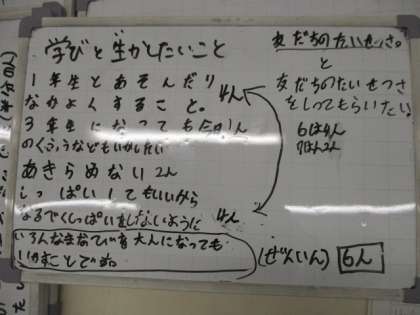 学びと生かしたいこと
1年生とあそんだり
なかよくすること。 4人
3年生になっても
のくさうなどもいかしたい
あきらめない 2人
しっぱいしてもいいから
なるべくしっぱいをしないように 4人
いろんなまなびを大人になっても
いかすことです。
友だちのたいせつさ。
と
友だちのたいせつさ
をしってもらいたい
6ぱん
7はん2人
(ぜんいん) 6人